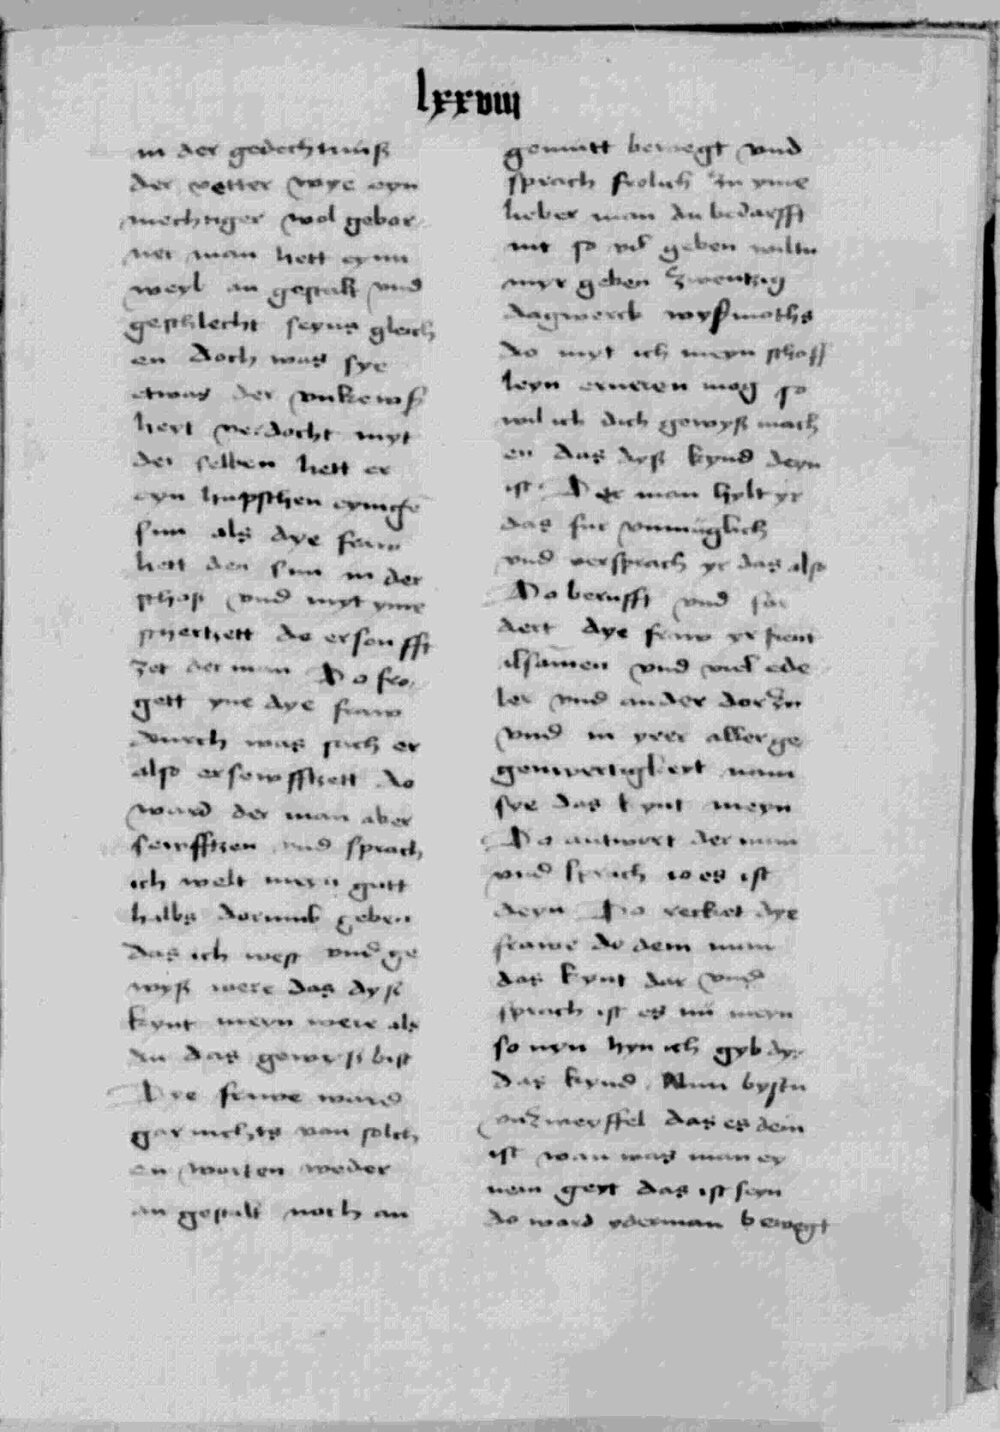 lxxviij
in der gedechtnuß
der vetter wye eyn
mechtiger wol gebor
ner man hett eynn
weyb an gestalt vnd
geschlecht seyns gleich
en doch was sye
etwas der vnkewß
heyt verdocht myt
der selben hett er
eyn hupschen eynige
sun als dye fraw
hett den sun in der
schoß vnd myt yme
schertzett do ersewfft
zet der man Do fro
gett yne dye fraw
durch was sach er
also ersewfftzett do
ward der man aber
sewfftzen vnd sprach
ich welt meyn gutt
halbs dorumb geben
das ich west vnd ge
wyß were das dyß
kynt meyn were als
du das gewyß bist
Dye frawe ward
gar nichts von solch
en worten weder
an gestalt noch an
gemutt bewegt vnd
sprach frolich zu yme
lieber man du bedarfft
nit so vil geben wiltu
myr geben zwentzig
dagwerck wyßmoths
do myt ich meyn schoff
leyn erneren mog so
wil ich dich gewyß mach
en das dyß kynd deyn
ist Der man hylt yr
das fur vnmuglich
vnd versprach yr das also
Do berufft vnd for
dert dye fraw yr freunt
alsamen vnd viel ede
ler vnd ander dorzu
vnd in yrer aller ge
genwertigkeyt nam
sye das kynt meyn
Do antwort der man
vnd sprach io es ist
deyn Do recket dye
frawe do dem man
das kynt dar vnd
sprach ist es nu meyn
so nym hyn ich gyb dyr
das kynd Nun bystu
vnzweyffel das es dein
ist wan was man ey
nem geyt das ist seyn
do ward yderman bewegt